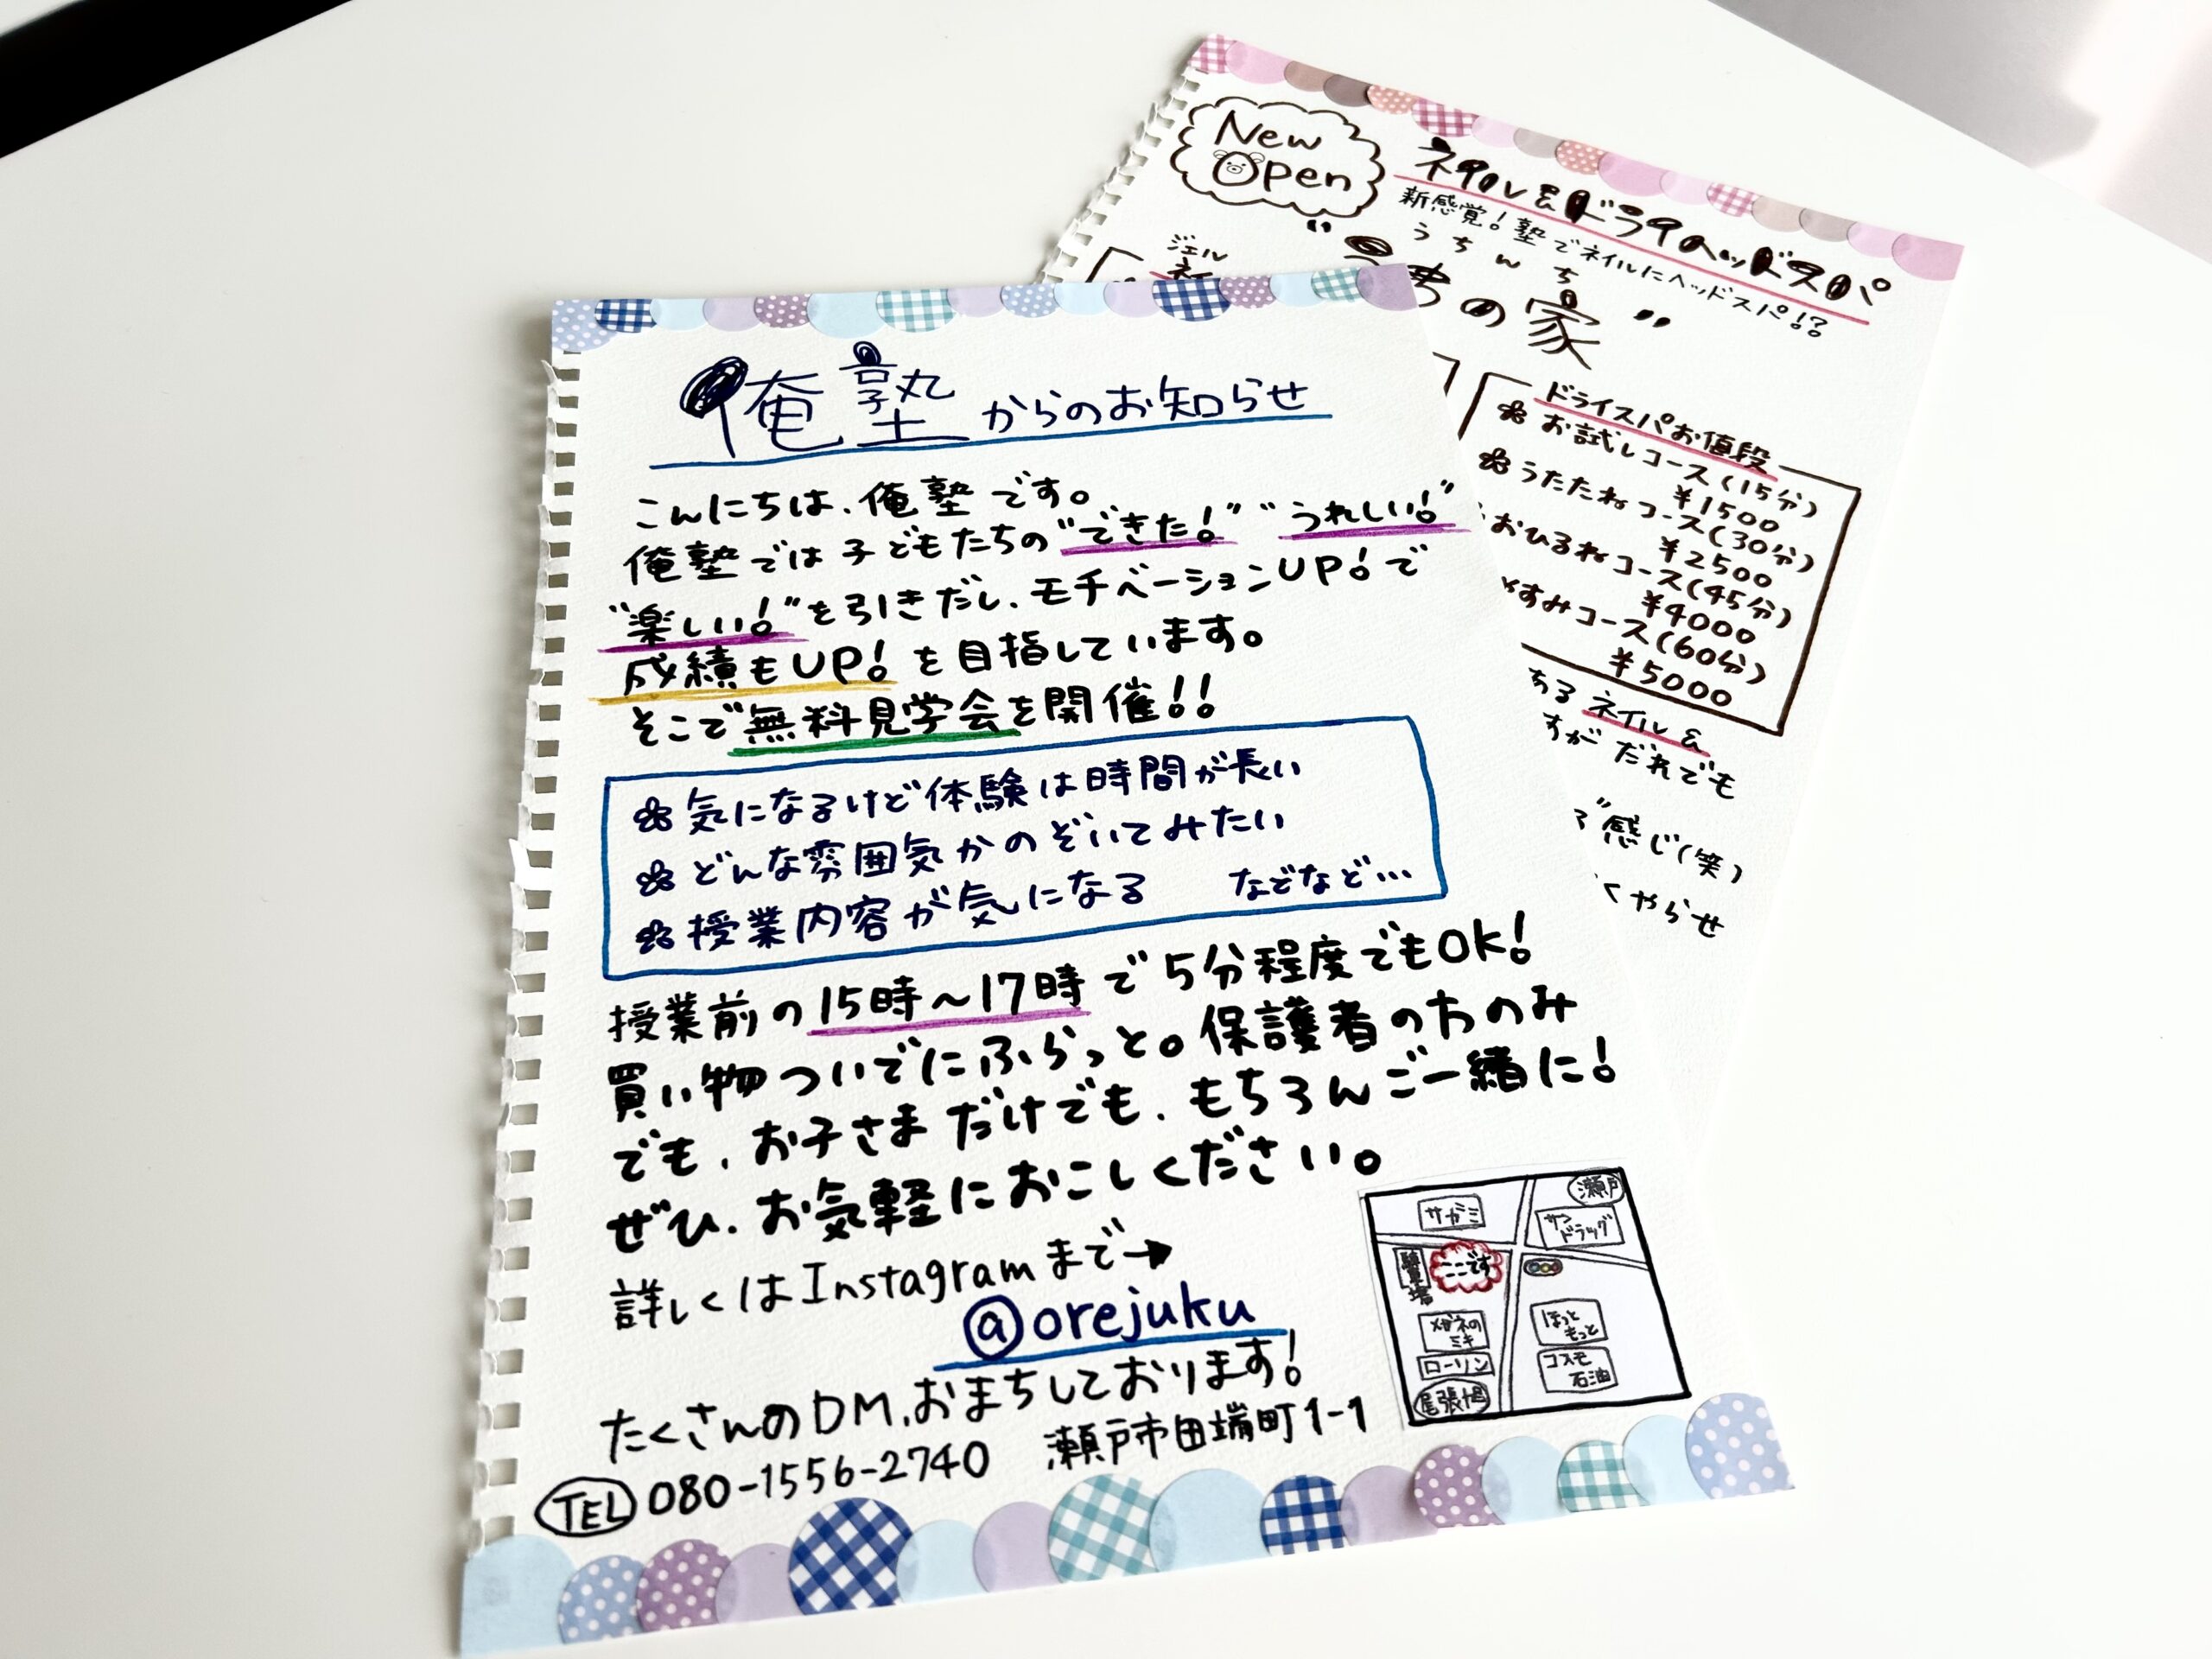 俺塾からのお知らせ
こんにちは、俺塾です。
俺塾では子どもたちの"できた!" "うれしい!"
"楽しい!"を引きだし、モチベーションUP!で
成績もUP!を目指しています。
そこで無料見学会を開催!!
気になるけど体験は時間が長い
どんな雰囲気かのぞいてみたい
授業内容が気になる などなど…
授業前の15時～17時で5分程度でもOK!
買い物ついでにふらっと。保護者の方のみ
でも、お子さまだけでも、もちろんご一緒に!
ぜひ、お気軽におこしください。
詳しくはInstagramまで→
@orejuku
たくさんのDM、おまちしております!
TEL 080-1556-2740 瀬戸市田端町1-1
瀬戸
サガミ
サン
ドラッグ
駐車場
ここです
メガネの
ミキ
ほっと
もっと
ローソン
コスモ
石油
尾張旭
New
Open
ネイル&ドライヘッドスパ
新感覚!塾でネイルにヘッドスパ!?
うちんち
の家"
ジェル
ドライスパお値段
お試しコース(15分)
¥1500
うたたねコース(30分)
¥2500
おひるねコース(45分)
¥4000
すみコース(60分)
¥5000
ある ネイル&
すが だれでも
"感じ(笑)
くやらせ